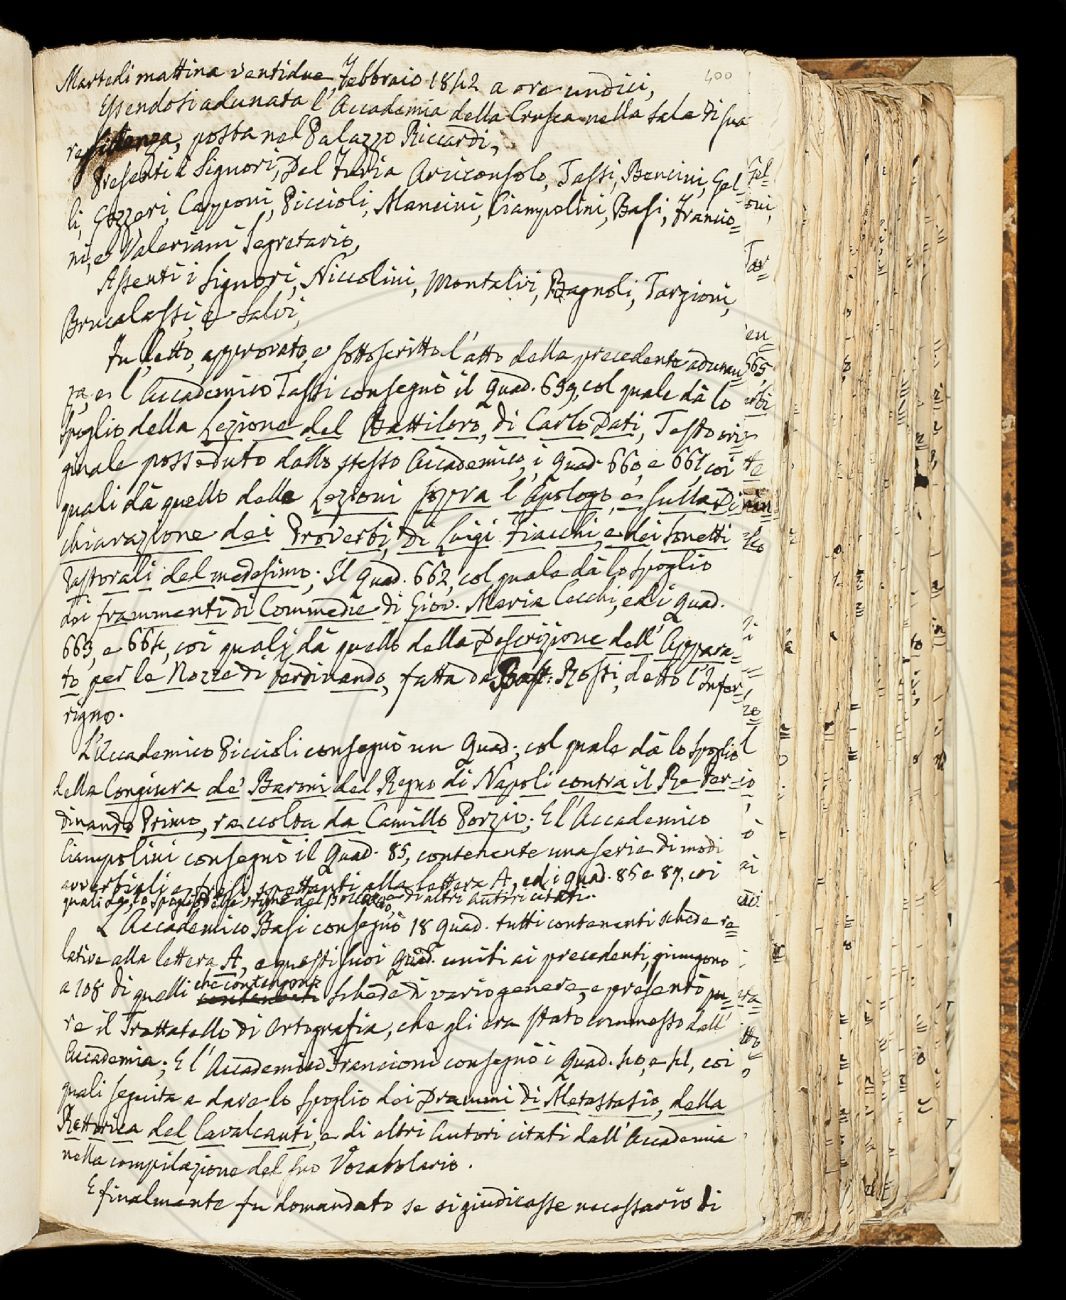 400
Martedi mattina ventidue Febbraio 1842 a ore undici,
Essendosi adunata l'Accademia della Crusca nella sala di sua
residenza, posta nel Palazzo Riccardi,
Presenti i Signori, Del Furia Arciconsolo, Tassi, Bencini, Gel=
li, Gozzeri, Capponi, Piccioli, Mancini, Ciampolini, Basi, Francio=
ni, e Valeriani Segretario,
Assenti i Signori, Niccolini, Montalvi, Bagnoli, Targioni,
Brucalassi, e Salvi,
Fu letto, approvato, e sottoscritto l'atto della precedente adunan=
za, e l'Accademico Tassi consegnò il Quad. 659, col quale dà lo
spoglio della Lezione del Battiloro, di Carlo Dati, Testo ori=
ginale posseduto dallo stesso Accademico, i Quad. 660, e 661, coi
quali dà quello delle Lezioni sopra l'Apologo, e sulla Di
chiarazione dei Proverbi, di Luigi Fiacchi, e dei Sonetti
Pastorali del medesimo; Il Quad. 662, col quale dà lo spoglio
dei frammenti di Commedie di Giov. Maria Cecchi, ed i Quad.
663, e 664, coi quali dà quello della Descrizione dell'Appara=
to per le Nozze di Ferdinando, fatta da Bast. Rossi, detto l'Infer=
rigno.
L'Accademico Piccioli consegnò un Quad., col quale dà lo spoglio
della Congiura de' Baroni del Regno di Napoli contra il Re Fer=
dinando Primo, raccolta da Camillo Porzio; E l'Accademico
Ciampolini consegnò il Quad. 85, contenente una serie di modi
avverbiali e spettanti alla lettera A, ed i Quad. 86 e 87, coi
quali dà lo spoglio delle del Boccaccio, e di altri autori citati.
L'Accademico Basi consegnò 18 Quad. tutti contenenti schede re=
lative alla lettera A, e questi suoi Quad. uniti ai precedenti, giungono
a 108 di quelli che contengono schede di vario genere, e presentò pu=
re il Trattatello di Ortografia, che gli era stato commesso dall'
Accademia; E l'Accademico Francioni consegnò i Quad. 40, e 41, coi
quali seguita a dare lo spoglio dei Drammi di Metastasio, della
Rettorica del Cavalcanti, e di altri Autori citati dall'Accademia
nella compilazione del suo Vocabolario.
E finalmente fu domandato se si giudicasse necessario di